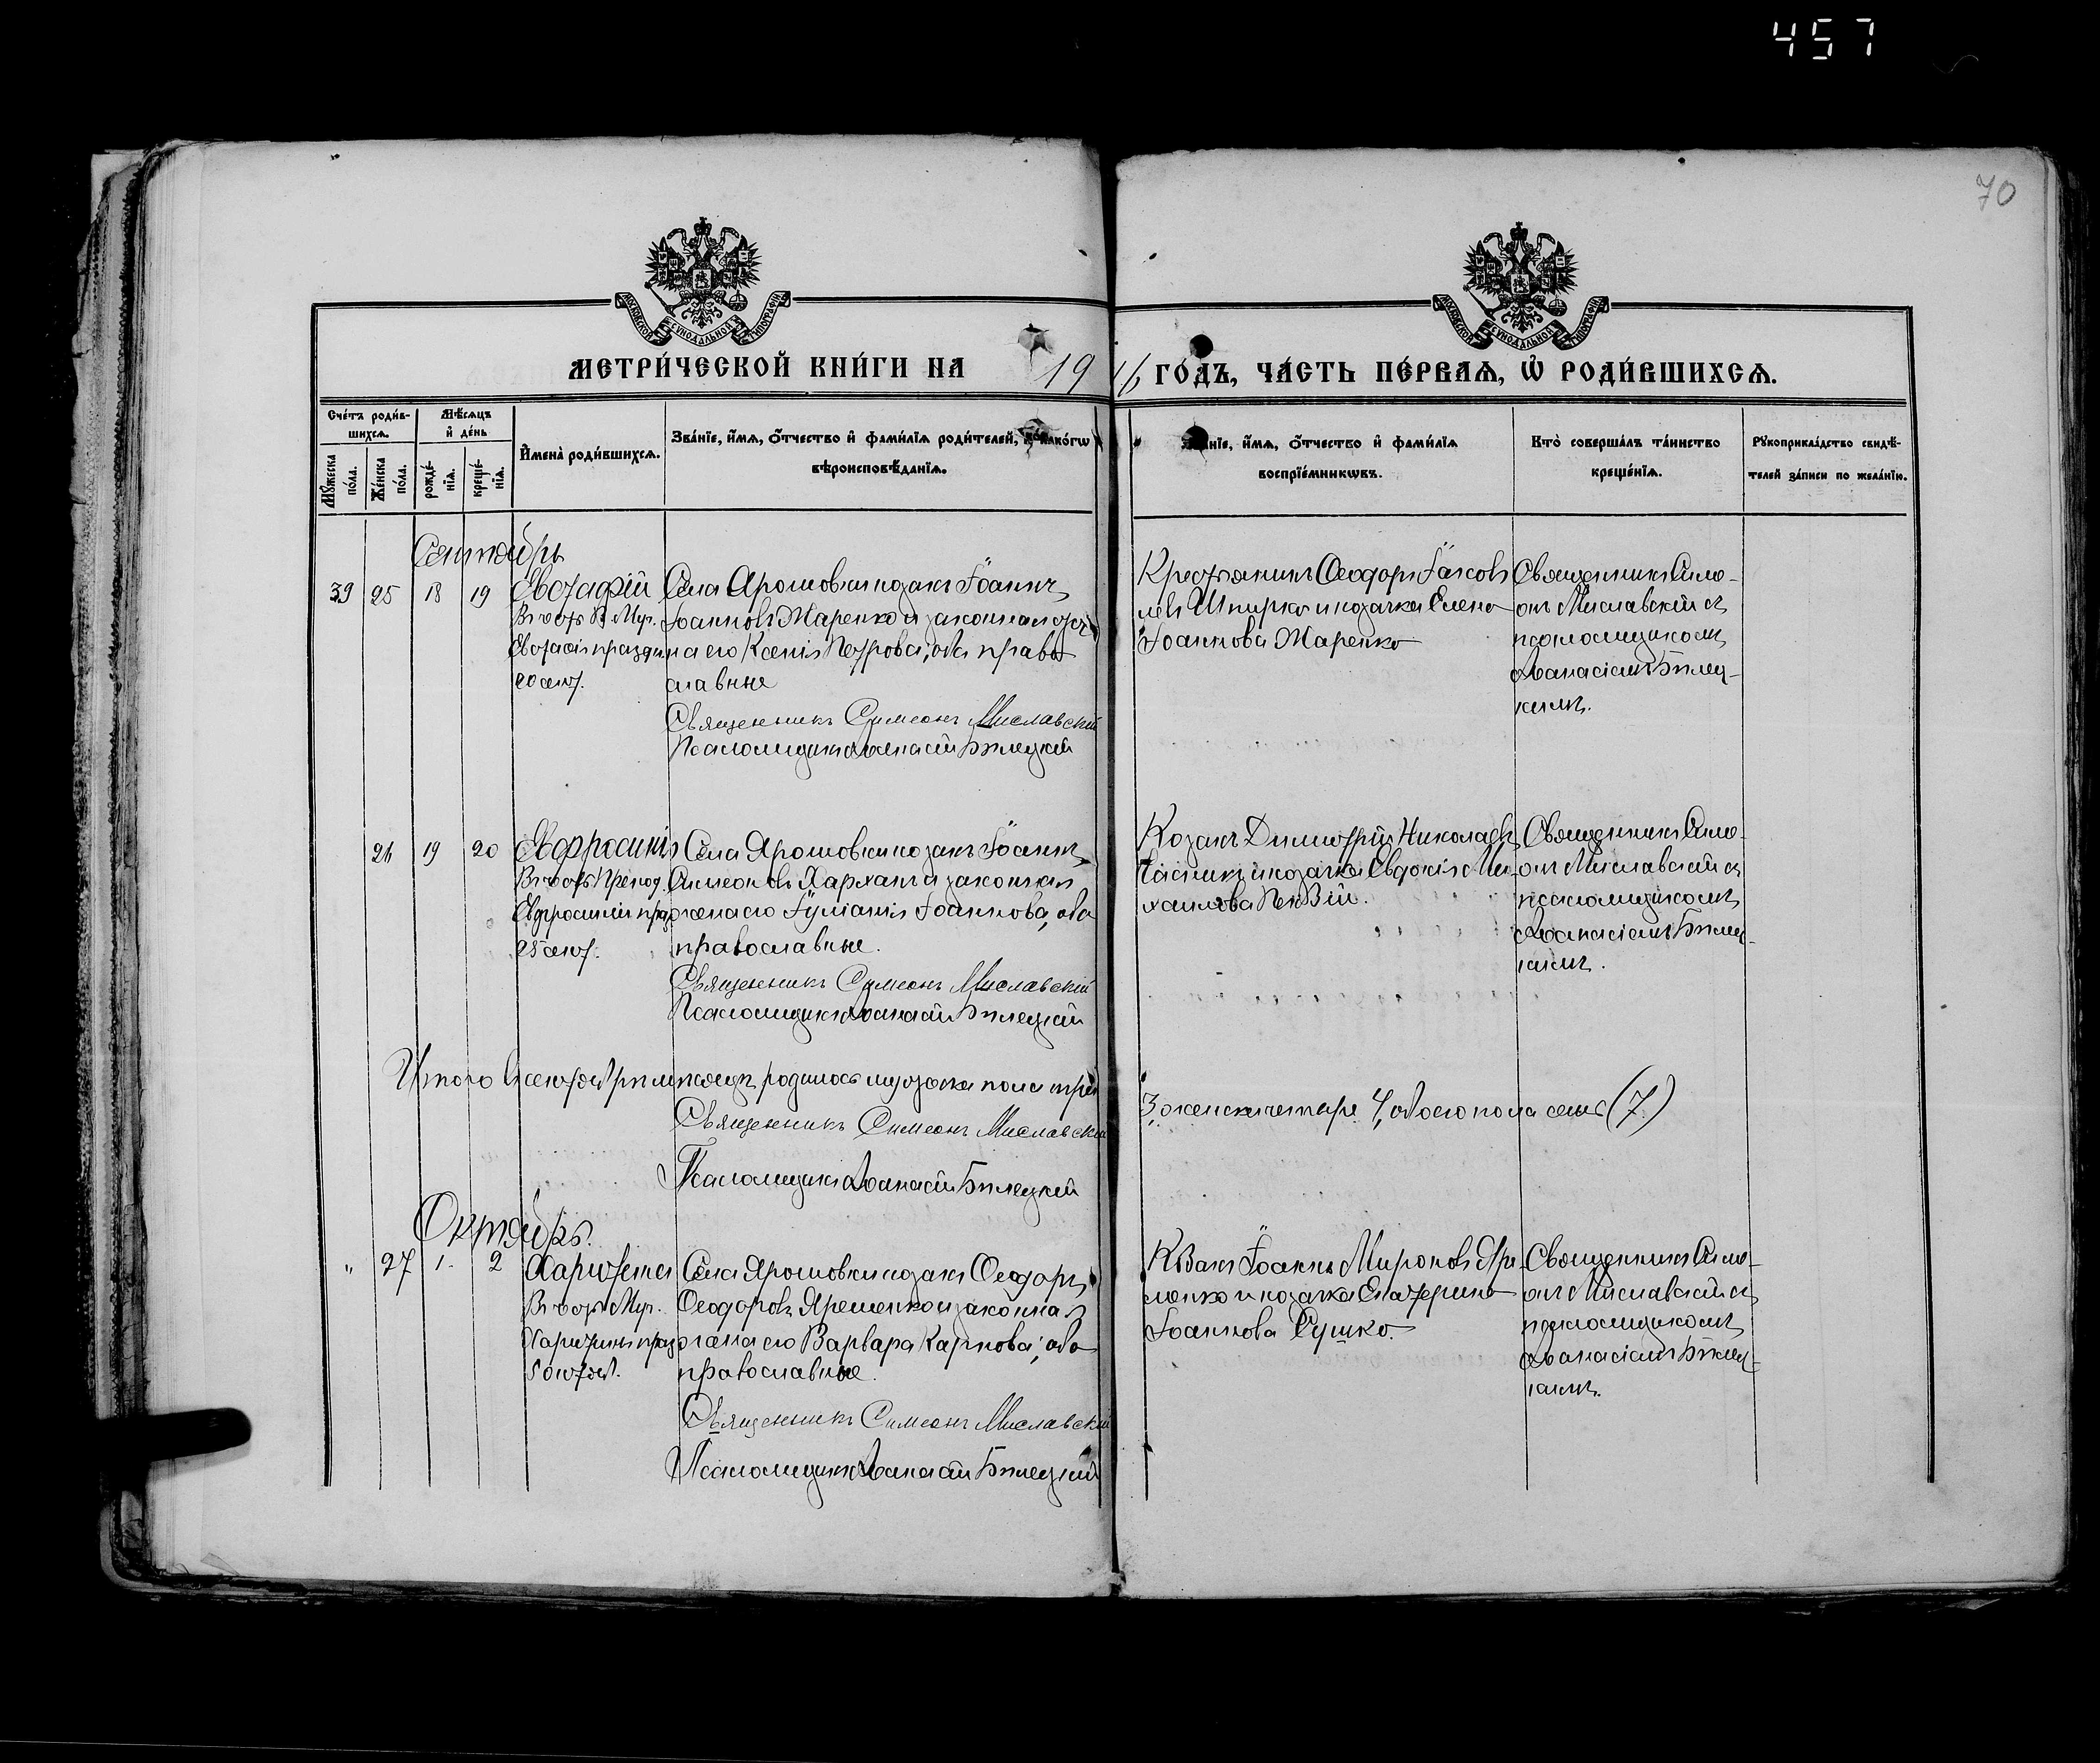 457
70
МОСКОВСКОЙ СѴНОДАЛЬНОЙ ТИПОГРАФІИ
МОСКОВСКОЙ СѴНОДАЛЬНОЙ ТИПОГРАФІИ
МЕТРИ́ЧЕСКОЙ КНИ́ГИ НА 1916 ГО́ДЪ, ЧА́СТЬ ПЕ́РВАѦ, Ѡ҆ РОДИ́ВШИХСѦ.
Сче́тъ роди́в-
шихсѧ.
Мѣ́сѧцъ
и҆ де́нь
Мꙋ́жеска
по́ла.
Же́нска
по́ла.
рожде́-
нїѧ.
креще́-
нїѧ.
И҆мена̀ роди́вшихсѧ.
Зва́нїе, и҆́мѧ, ѻ҆́тчество и҆ фами́лїѧ роди́телей, и҆ како́гѡ
вѣроисповѣ́данїѧ.
Зва́нїе, и҆́мѧ, ѻ҆́тчество и҆ фами́лїѧ
воспрїе́мникѡвъ.
Кто̀ соверша́лъ та́инство
креще́нїѧ.
Рꙋкоприкла́дство свидѣ́-
телей за́писи по жела́нїю.
Сентябрь
39 25 18 19
Евстафій
Въ честь В. Муч.
Евстафія праздн.
20 сент.
Села Ярошовки козакъ Іоаннъ
Іоанновъ Маренко и законная же-
на его Ксенія Петрова, оба право
славные
Священникъ Симеонъ Миславскій
Псаломщикъ Аѳанасій Бѣлецкій
Крестьянинъ Ѳеодоръ Іаков
левъ Шпирко и козачка Елена
Іоаннова Маренко
Священникъ Симе-
онъ Миславскій съ
псаломщикомъ
Аѳанасіемъ Бѣлец-
кимъ.
26 19 20
Евфросинія
Въ честь Препод.
Евфросиніи праз
25 сент.
Села Ярошовки козакъ Іоаннъ
Симеоновъ Харханъ и законная
жена его Іуліанія Іоаннова, оба
православные.
Священникъ Симеонъ Миславскій
Псаломщикъ Аѳанасій Бѣлецкій
Козакъ Димитрій Николаевъ
и козачка Евдокія Ми-
хаилова
Священникъ Симе-
онъ Миславскій съ
псаломщикомъ
Аѳанасіемъ Бѣлец-
кимъ.
Итого въ сентябрѣ мѣсяцѣ родилось мужеска пола три
3, женска четыре 4, обоего пола семь (7)
Священникъ Симеонъ Миславскій
Псаломщикъ Аѳанасій Бѣлецкій
Октябрь.
" 27 1. 2
Харитина
Въ честь Муч.
Харитины праз
5 октяб.
Села Ярошовки козакъ Ѳеодоръ
Ѳеодоровъ Яременко и законная
жена его Варвара Карпова, оба
православные.
Священникъ Симеонъ Миславскій
Псаломщикъ Аѳанасій Бѣлецкій
Козакъ Іоаннъ Мироновъ Яре
менко и козачка Екатерина
Іоаннова Сушко.
Священникъ Симе-
онъ Миславскій съ
псаломщикомъ
Аѳанасіемъ Бѣлец-
кимъ.